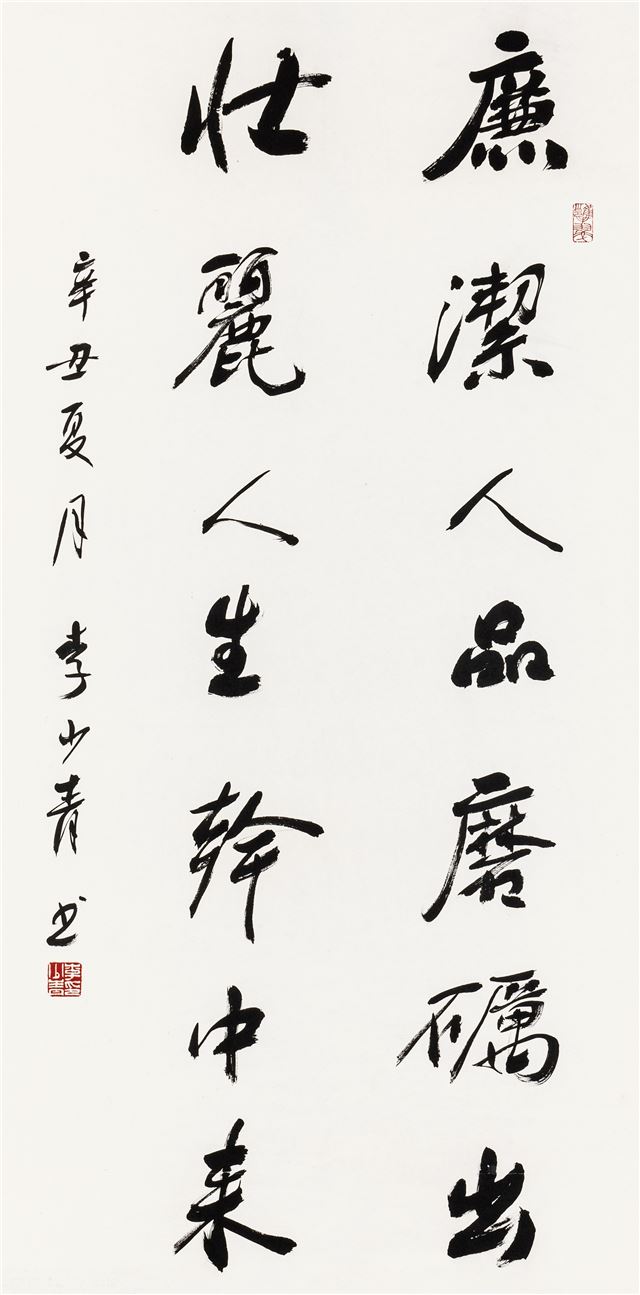 廉潔人品磨礪出
壯麗人生幹中来
辛丑夏月李少青书